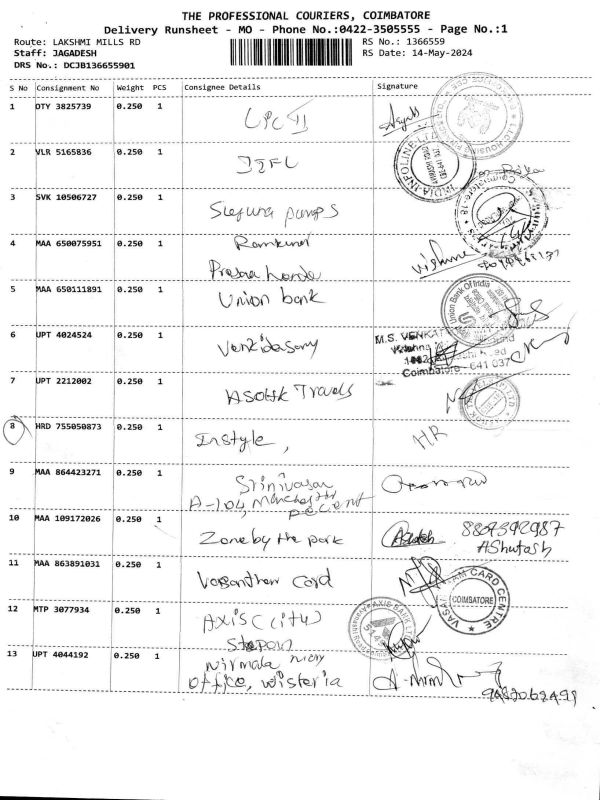 THE PROFESSIONAL COURIERS, COIMBATORE
Delivery Runsheet - MO - Phone No.:0422-3505555 - Page No.:1
Route: LAKSHMI MILLS RD
RS No.: 1366559
Staff: JAGADESH
RS Date: 14-May-2024
DRS No.: DCJB136655901
S No Consignment No Weight PCS Consignee Details Signature
1 OTY 3825739 0.250 1
2 VLR 5165836 0.250 1 IIFL
INDIA INFOLINE LTD
3 SVK 10506727 0.250 1 Suguna pumps
Coimbatore-18
4 MAA 650075951 0.250 1 Ramkumar
Vishnu
Prabha
5 MAA 650111891 0.250 1 Union bank
Union Bank Of India
6 UPT 4024524 0.250 1 Venkidasamy
M.S. VENKAT
Krishna
Coimbatore - 641 037
7 UPT 2212002 0.250 1 Ashok Travels
8 HRD 755050873 0.250 1 Instyle, HR
9 MAA 864423271 0.250 1 Srinivasan
A-104, Manchester
10 MAA 109172026 0.250 1 Zone by the park
Ashutosh 8809392987
Ashutosh
11 MAA 863891031 0.250 1 Vasantham card
VASANTHAM CARD CENTRE
COIMBATORE
12 MTP 3077934 0.250 1 Axis (city)
AXIS BANK LTD
13 UPT 4044192 0.250 1 Nirmala
office, wisteria